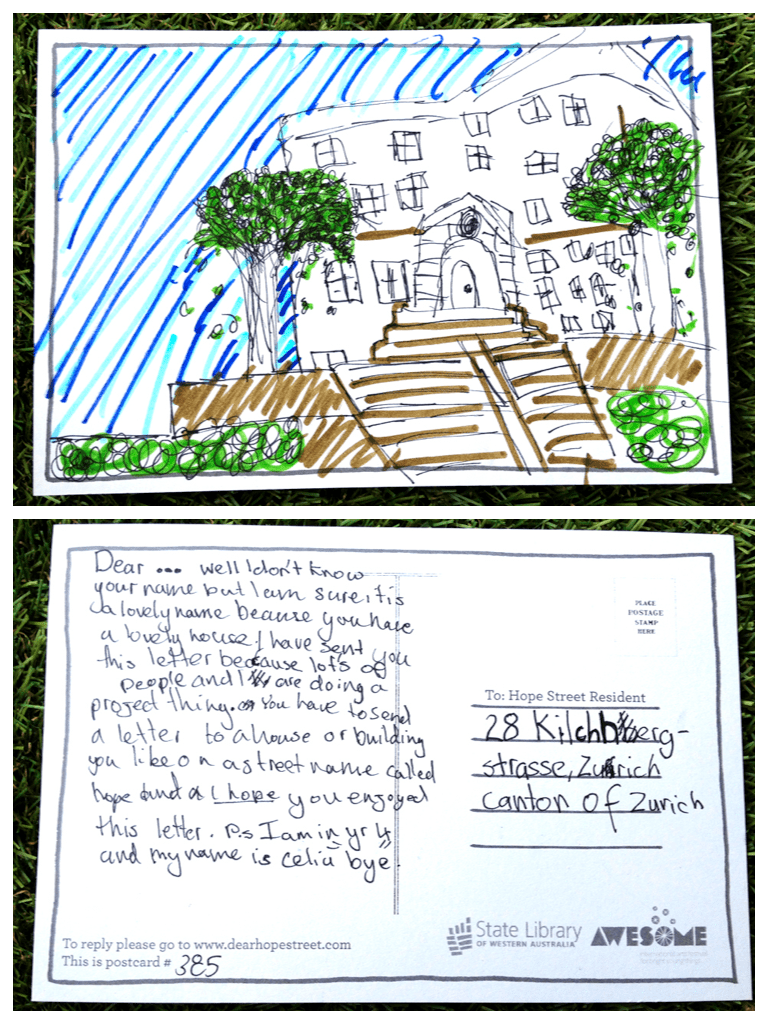 Dear ... well I don't know
your name but I am sure it is
a lovely name because you have
a lovely house. I have sent you
this letter because lots of
people and I are doing a
project thing. You have to send
a letter to a house or building
you like on a street name called
hope and I hope you enjoyed
this letter. P.s I am in yr 4
and my name is celia bye.
PLACE
POSTAGE
STAMP
HERE
To: Hope Street Resident
28 Kilchberg-
strasse, Zurich
canton of Zurich
To reply please go to www.dearhopestreet.com
This is postcard # 385
State Library
OF WESTERN AUSTRALIA
AWESOME